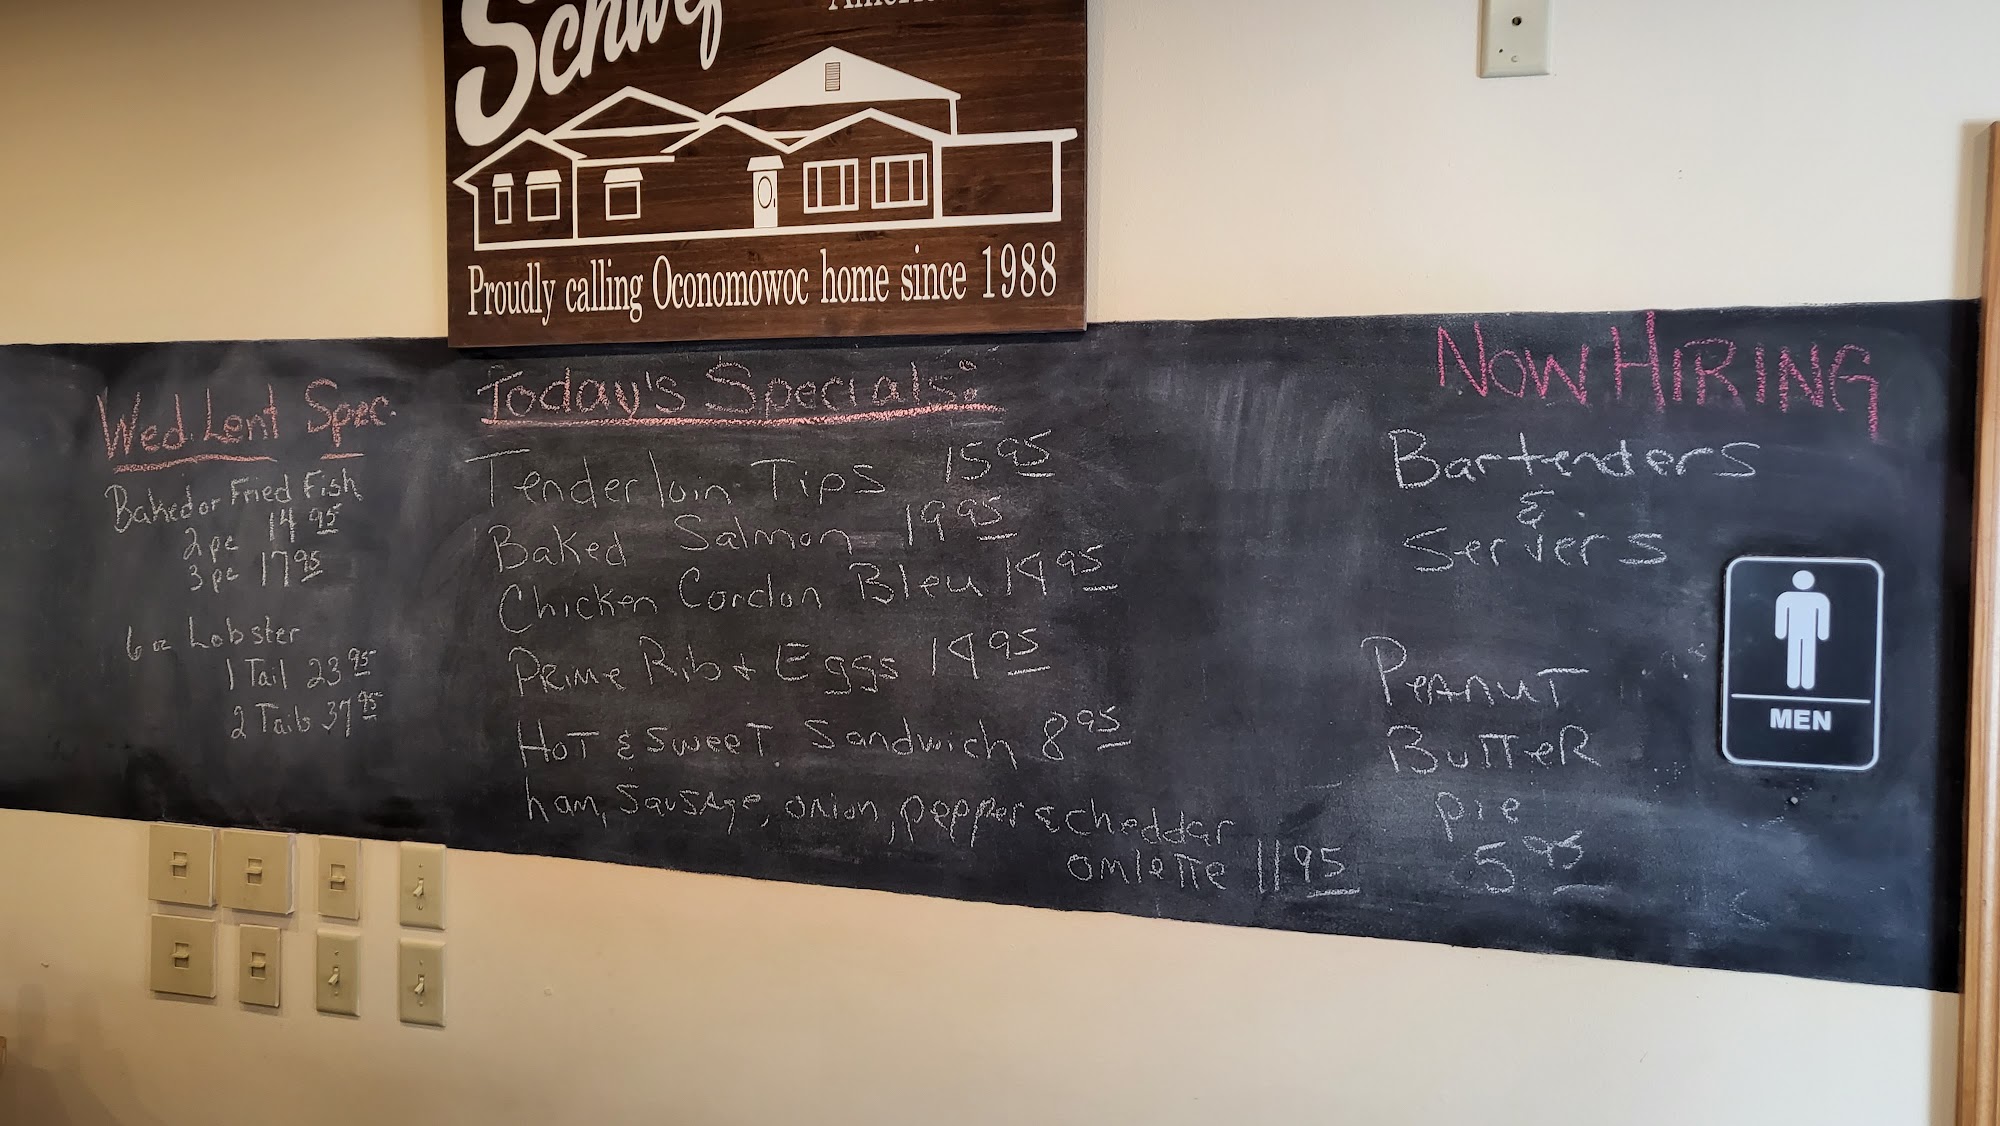 Schwef
Proudly calling Oconomowoc home since 1988
Wed. Lent Spec.
Baked or Fried Fish
2 pc 14 95
3 pc 17 95
6 oz Lobster
1 Tail 23 95
2 Tails 37 95
Today's Specials:
Tenderloin Tips 15 95
Baked Salmon 19 95
Chicken Cordon Bleu 14 95
Prime Rib & Eggs 19 95
Hot & Sweet Sandwich 8 95
ham, sausage, onion, pepper & cheddar
omlette 11 95
NOW HIRING
Bartenders
&
Servers
Peanut
Butter
pie
5 95
MEN